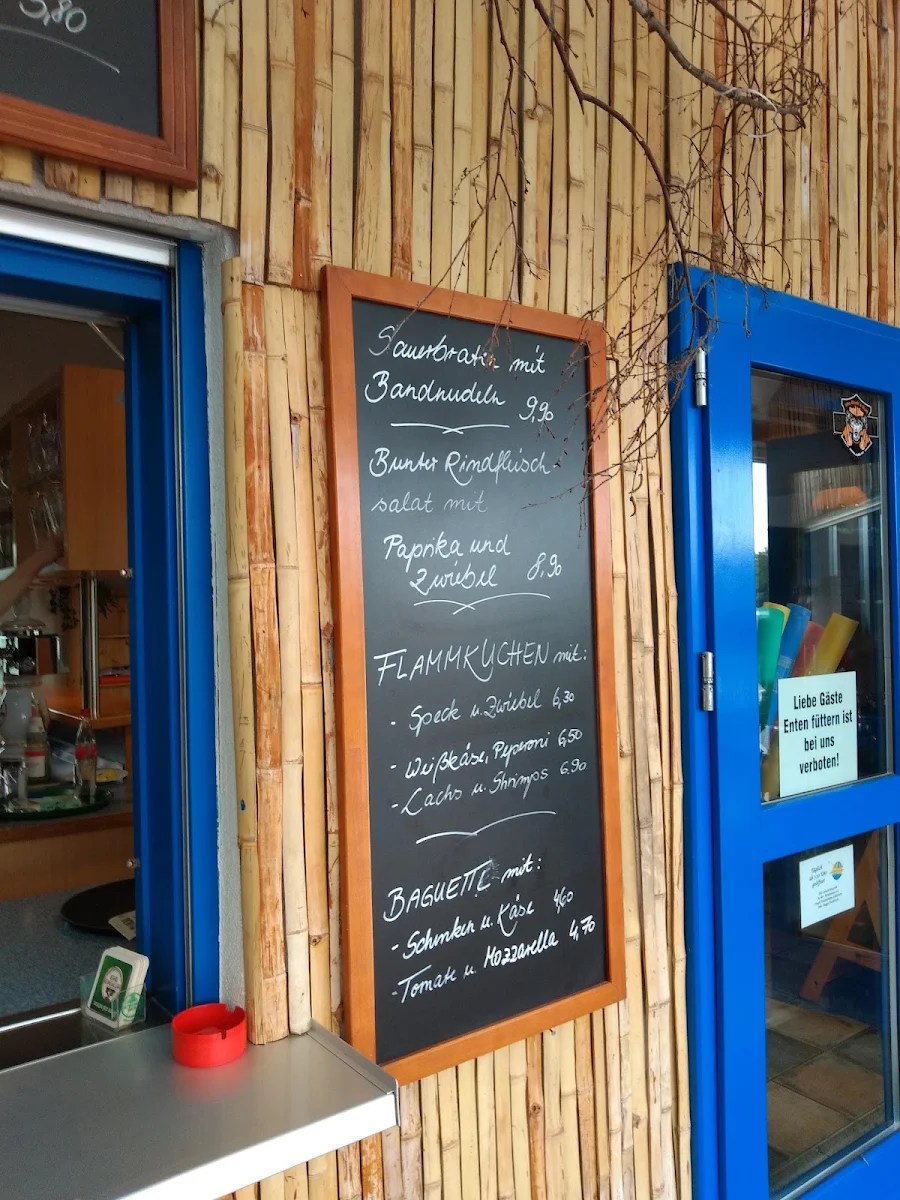 5,80
Sauerbraten mit
Bandnudeln 9,90
Bunter Rindfleisch
salat mit
Paprika und
Zwiebel 8,90
FLAMMKUCHEN mit:
- Speck u. Zwiebel 6,30
- Weißkäse, Peperoni 6,50
- Lachs u. Shrimps 6.90
BAGUETTE mit:
- Schinken u. Käse 4,60
- Tomate u. Mozzarella 4,70
Liebe Gäste
Enten füttern ist
bei uns
verboten!